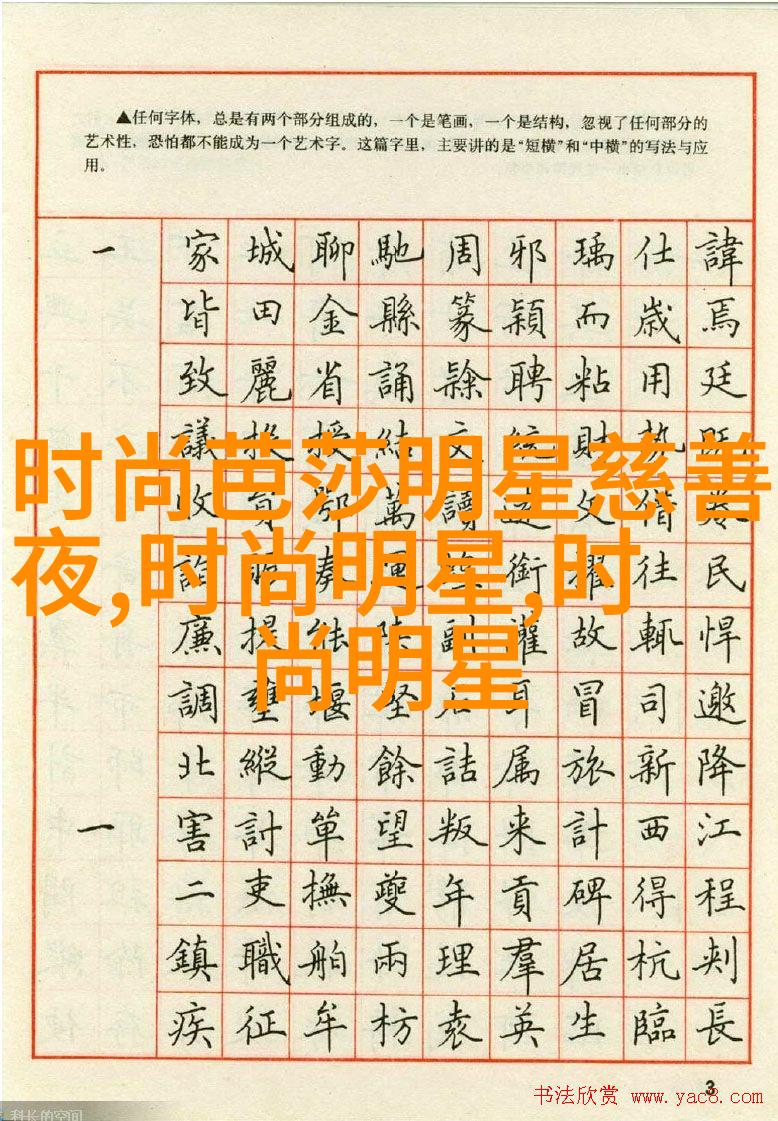 ▲任何字体，总是有两个部分组成的，一个是笔画，一个是结构，忽视了任何部分的
艺术性，恐怕都不能成为一个艺术字。这篇字里，主要讲的是“短横”和“中横”的写法与应
用。
一 家 城 聊 馳 周 邪 瑀 仕 諱
皆 田 金 縣 篆 穎 而 歲 焉
致 麗 省 誦 聘 粘 用 廷
議 授 結 文 統 財 勢 既
收 鄂 萬 讀 文 借
奏 運 銜 擢 往 民
廉 提 能 陝 副 灌 故 輒 悍
調 壅 堰 堅 石 耳 冒 司 邀
北 縱 動 餘 詰 属 旅 新 降
一 害 討 單 望 叛 来 計 西 江
二 吏 撫 夔 年 貢 碑 得 程
鎮 職 舶 兩 理 羣 居 杭 刺
疾 征 牟 枋 袁 英 生 臨 長
时尚芭莎明星慈善
夜,时尚明星,时
尚明星
3
书法欣赏 www.yac8.com
科长的空间